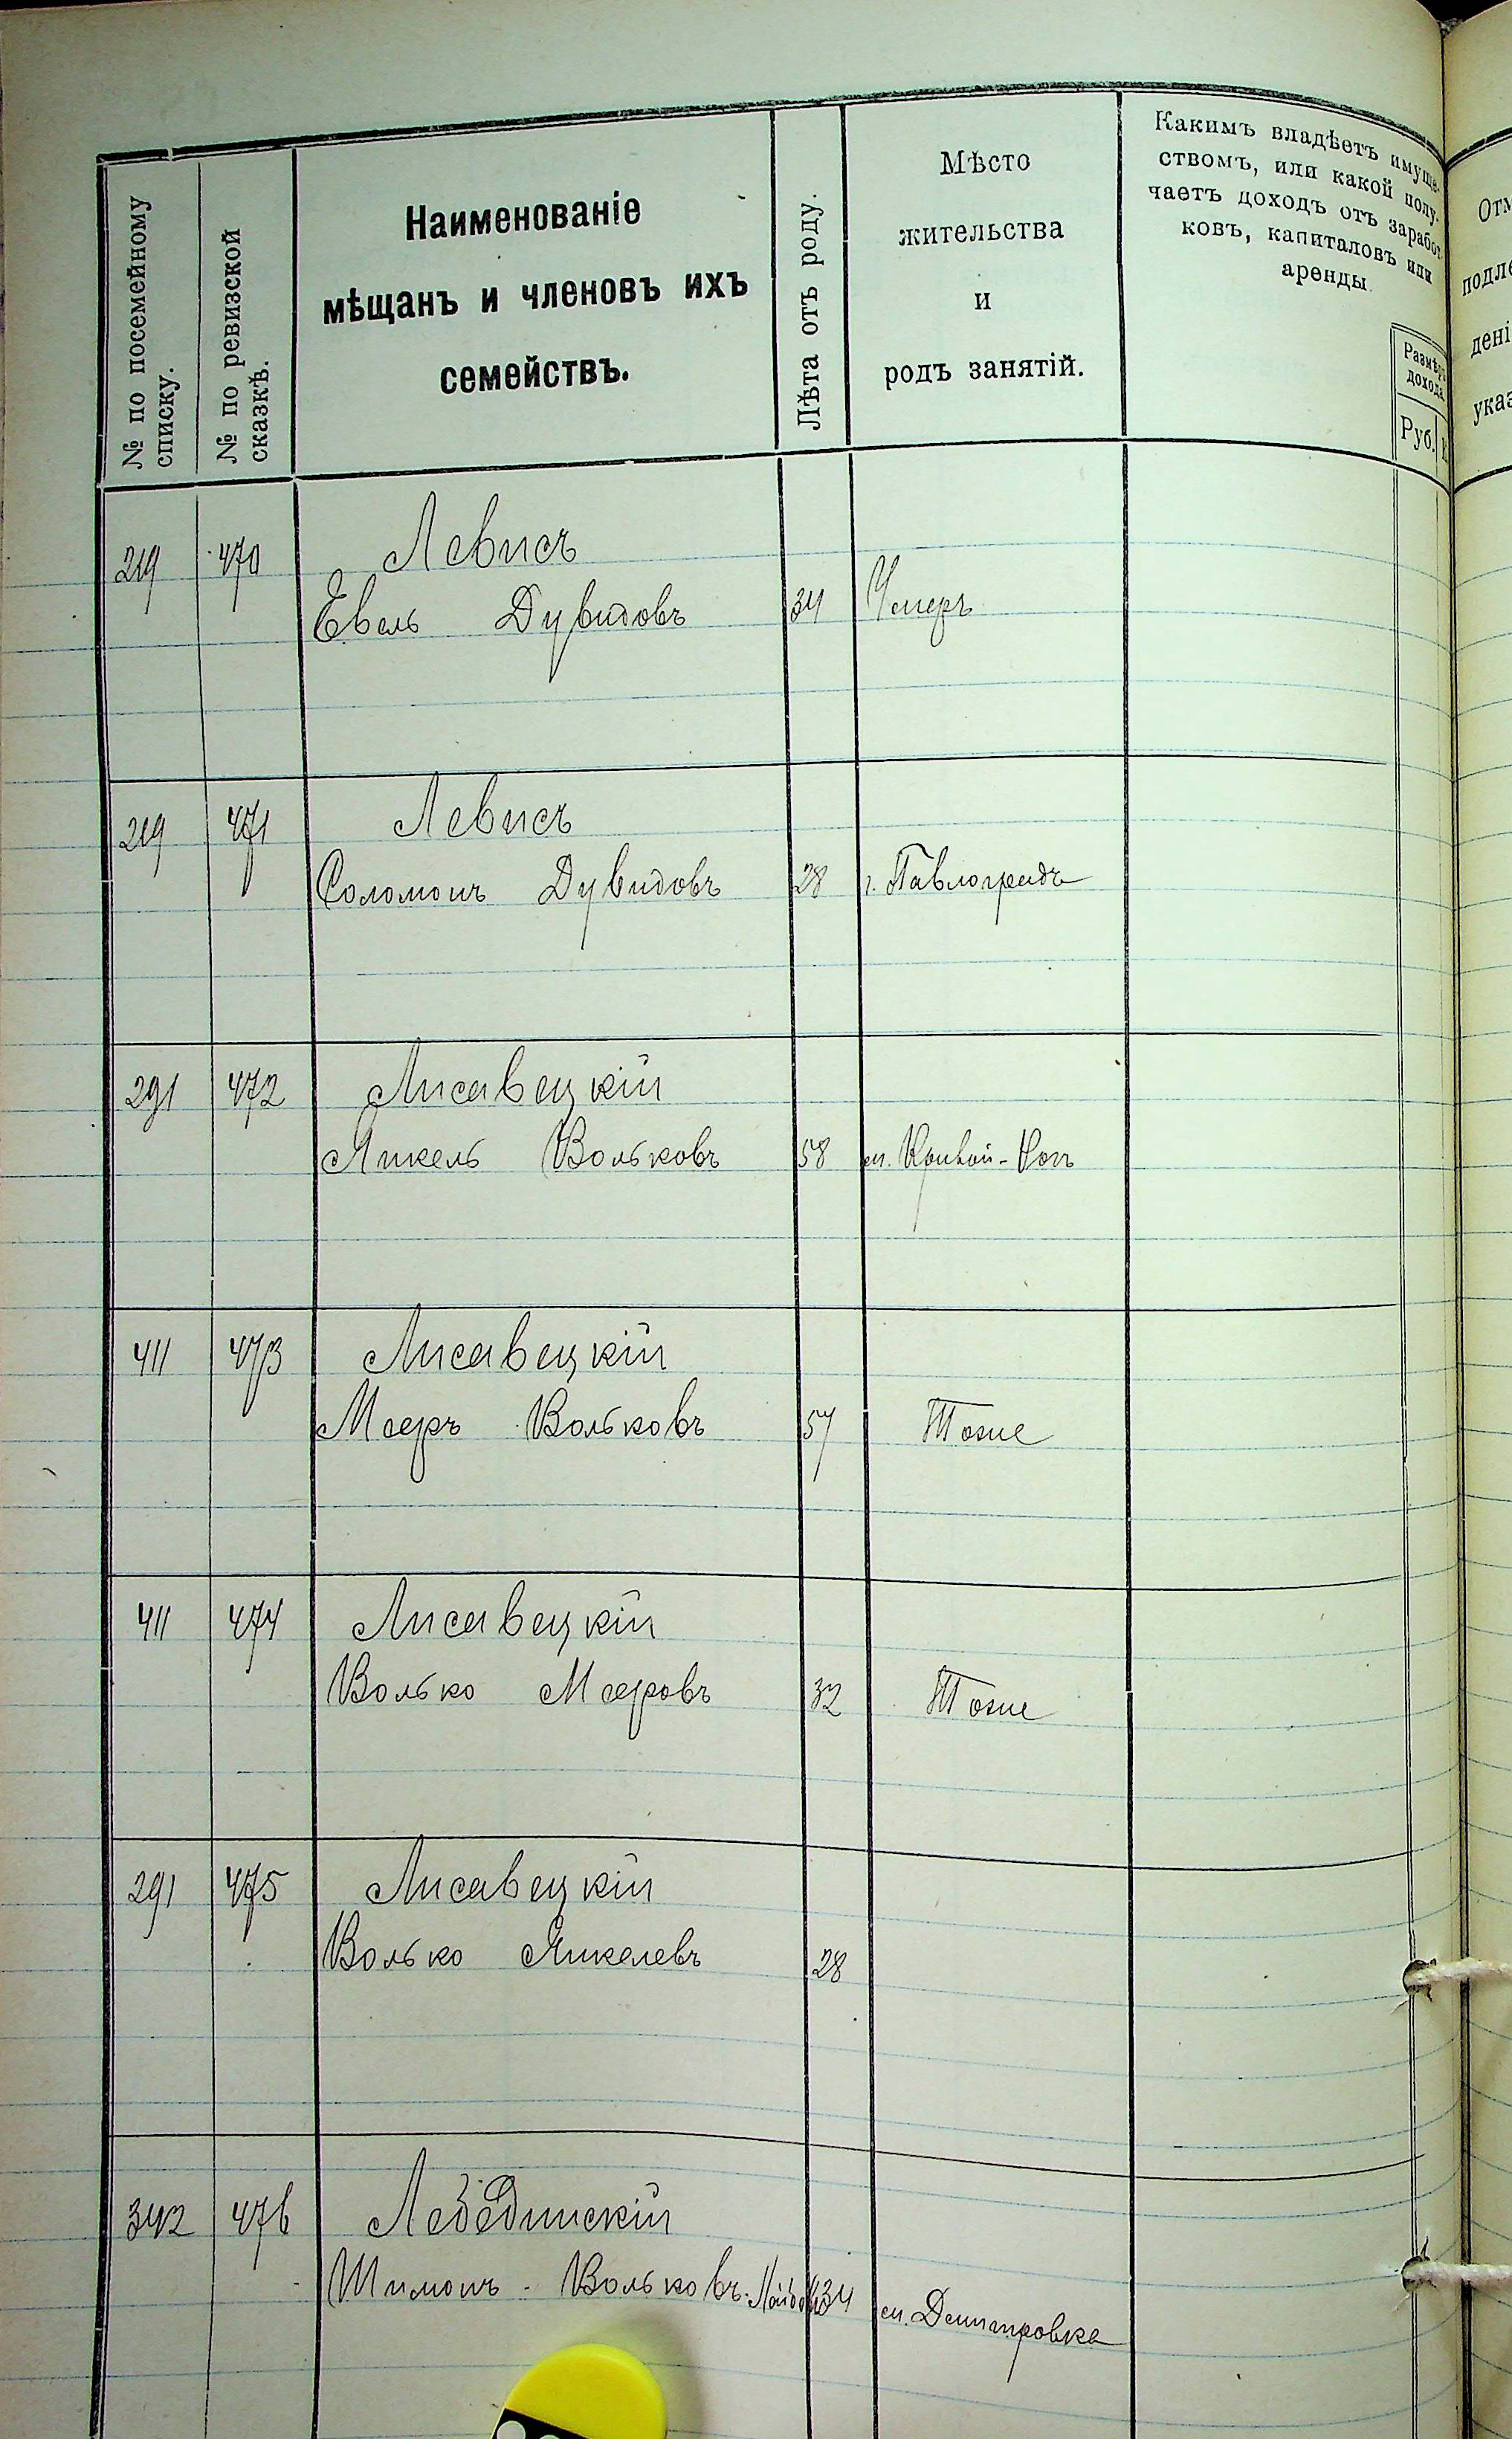 № по посемейному
списку.
№ по ревизской
сказкѣ.
Наименованіе
мѣщанъ и членовъ ихъ
семействъ.
Лѣта отъ роду.
Мѣсто
жительства
и
родъ занятій.
Какимъ владѣетъ имуще-
ствомъ, или какой полу-
чаетъ доходъ отъ заработ-
ковъ, капиталовъ или
аренды.
Размѣръ
дохода
Руб.
219 470 Левисъ
Евель Дувидовъ 34 Умеръ
219 471 Левисъ
Соломонъ Дувидовъ 28 г. Павлоградъ
291 472 Лисавецкій
Янкель Вольковъ 58 м. Кривой-Рогъ
411 473 Лисавецкій
Мееръ Вольковъ 57 Тоже
411 474 Лисавецкій
Волько Мееровъ 32 Тоже
291 475 Лисавецкій
Волько Янкелевъ 28
342 476 Лебединскій
Шимонъ - Вольковъ 34 м. Дмитровка